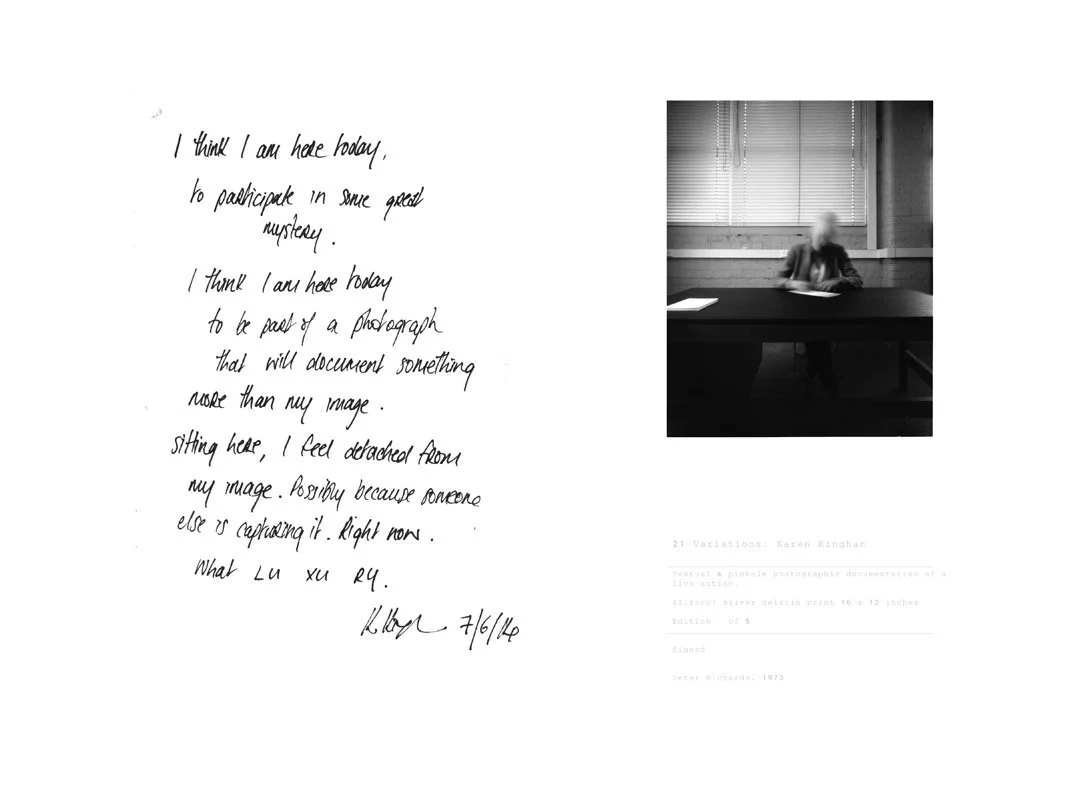 I think I am here today,
to participate in some great
mystery.
I think I am here today
to be part of a photograph
that will document something
more than my image.
Sitting here, I feel detached from
my image. Possibly because someone
else is capturing it. Right now.
What LU XU RY.
7/6/14
21 Variations: Karen Kinghan
Textual & pinhole photographic documentation of a
live action.
(Ilford) silver gelatin print 16 x 12 inches
Edition of 5
Signed
Peter Richards, 1970